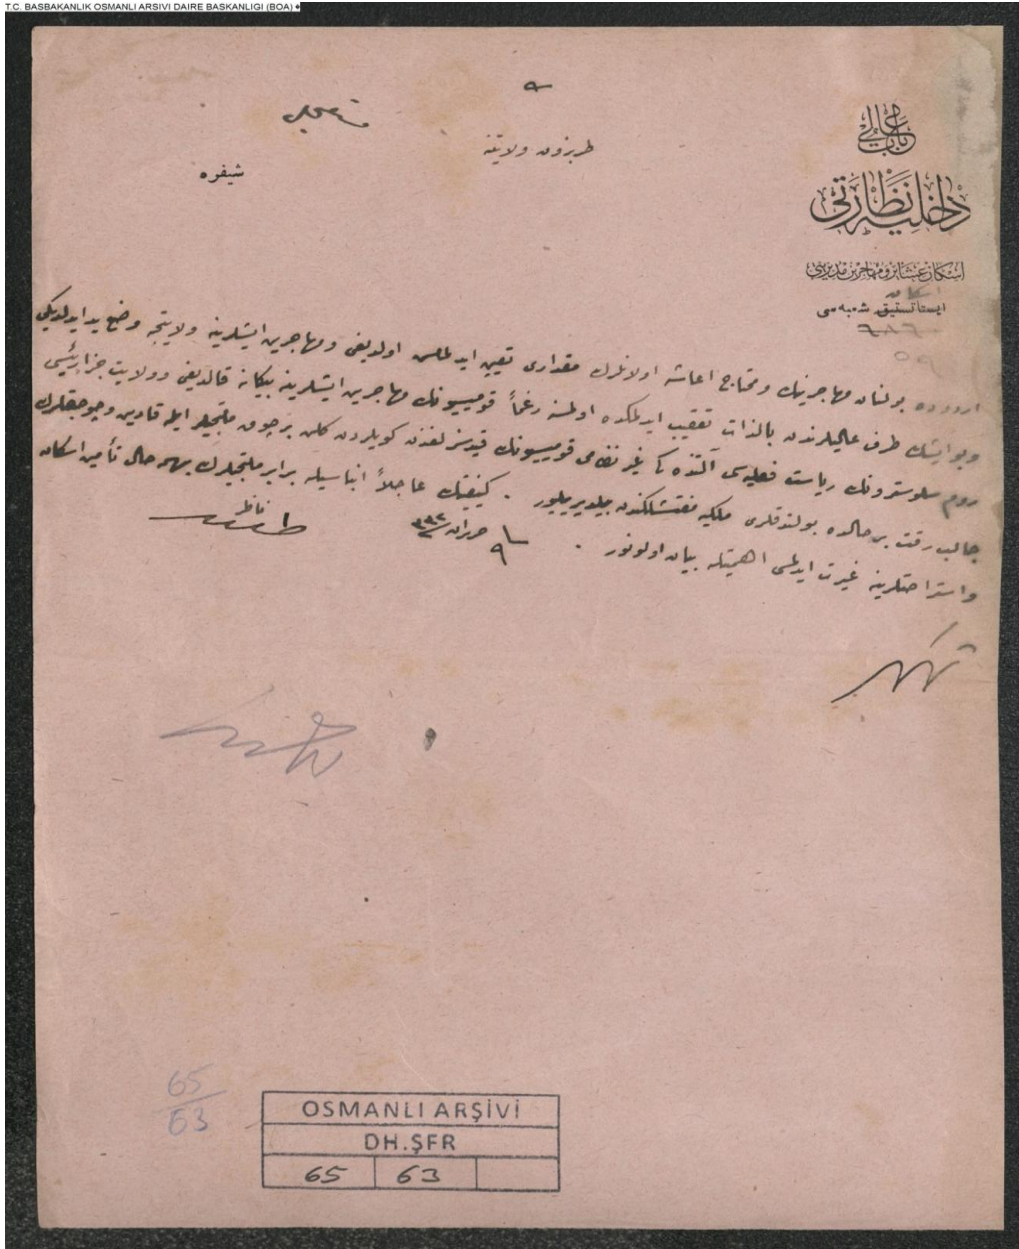 T.C. BASBAKANLIK OSMANLI ARSIVI DAIRE BASKANLIGI (BOA)
باب عالی
داخلیه نظارتی
اسکان عشائر و مهاجرین مدیریتی
اسکان
ایستاتستیق شعبه سی
طربزون ولایتنه
شیفره
اردوده بولنان مهاجرینك و محتاج اعاشه اولانلرك مقداری تعیین ایدلمامش اولدیغی و مهاجرین ایشلرینه ولایتجه وضع ید ایدلدیكی
و بو ایشك طرف عالیلرندن بالذات تعقیب ایدلمكده اولمسنه رغماً قومیسیونك مهاجرین ایشلرینه بیكانه قالدیغی و ولایت جزا رئیسی
روم ریاست فعلیه سی آلتنده قومیسیونك قیدسزلغندن كویلردن كلن برچوق ملتجیلر ایله قادین و چوجقلرك
جالب رقت بر حالده بولندقلری ملكیه مفتشلكندن بیلدیریلیور . كیفیتك عاجلاً انباسیله برابر ملتجیلرك بهمه حال تأمین اسكان
و استراحتلرینه غیرت ایدلمسی اهمیتله بیان اولونور .
حزیران ٣٣٢
ناظر
65
63
OSMANLI ARŞİVİ
DH.ŞFR
65 63